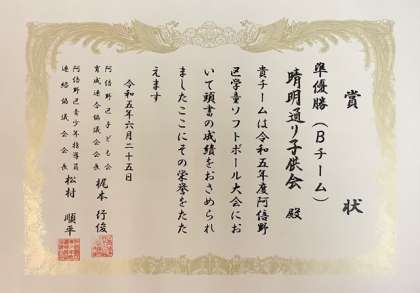 賞状
準優勝（Bチーム）
晴明通り子供会 殿
貴チームは令和五年度阿倍野
区学童ソフトボール大会にお
いて頭書の成績をおさめられ
ましたここにその栄誉をたた
えます
令和五年六月二十五日
阿倍野区子ども会
育成連合協議会会長 梶本 行俊
阿倍野区青少年指導員
連絡協議会会長 松村 順平